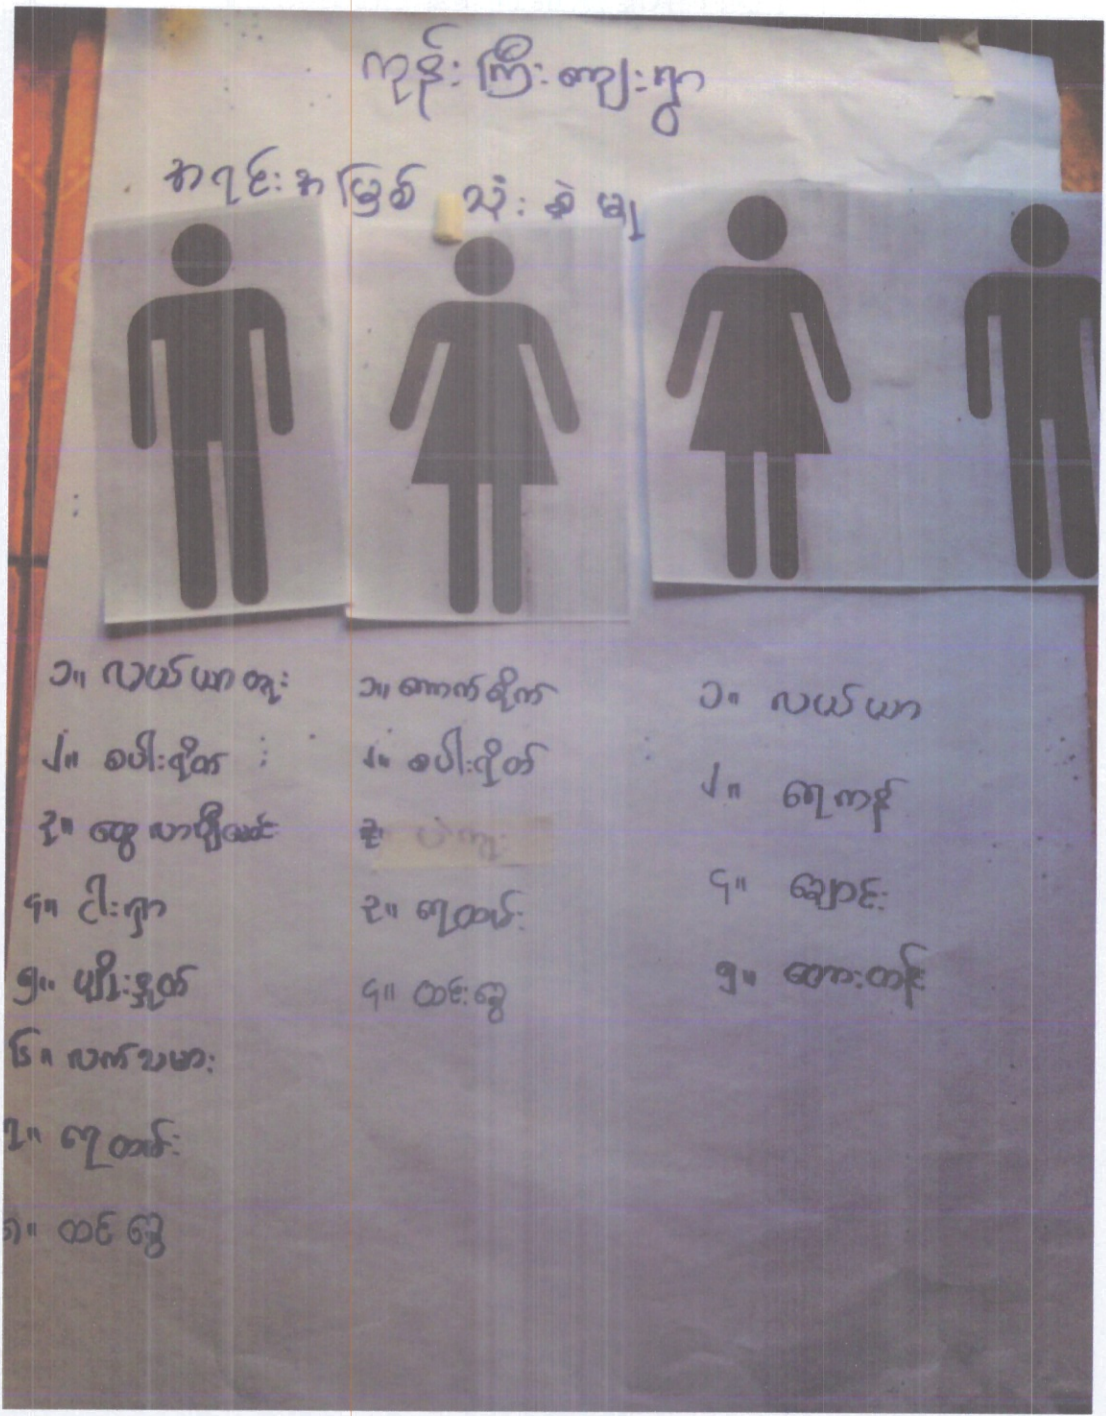 ကုန်းကြီးကျေးရွာ
အရင်းအမြစ် သုံးစွဲမှု
၁။ လယ်ယာထွန်း
၂။ စပါးရိတ်
၃။ ထွေ
၄။ ငါးရှာ
၅။ မျိုးနှုတ်
၆။ လက်သမား
၇။ ရေထမ်း
၈။ ထင်းခွေ
၁။ ကောက်စိုက်
၂။ စပါးရိတ်
၃။ ရေထမ်း
၄။ ထင်းခွေ
၁။ လယ်ယာ
၂။ ရေကန်
၄။ ချောင်း
၅။ တောတန်း